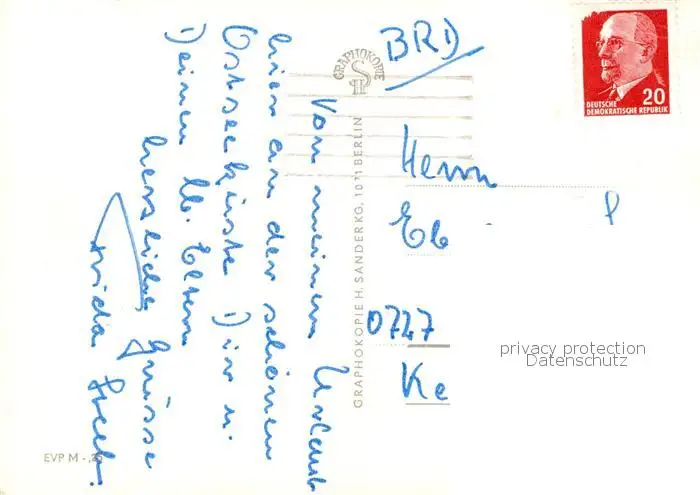 Von meinem Urlaub
hier an der schönen
Ostseeküste Dir u.
Deinen lb. Eltern
herzliche Grüsse
BRD
Herrn
Eb
0747
Ke
GRAPHOKOPIE
H S
GRAPHOKOPIE H. SANDER KG, 1071 BERLIN
20
DEUTSCHE
DEMOKRATISCHE REPUBLIK
privacy protection
Datenschutz
EVP M -,25